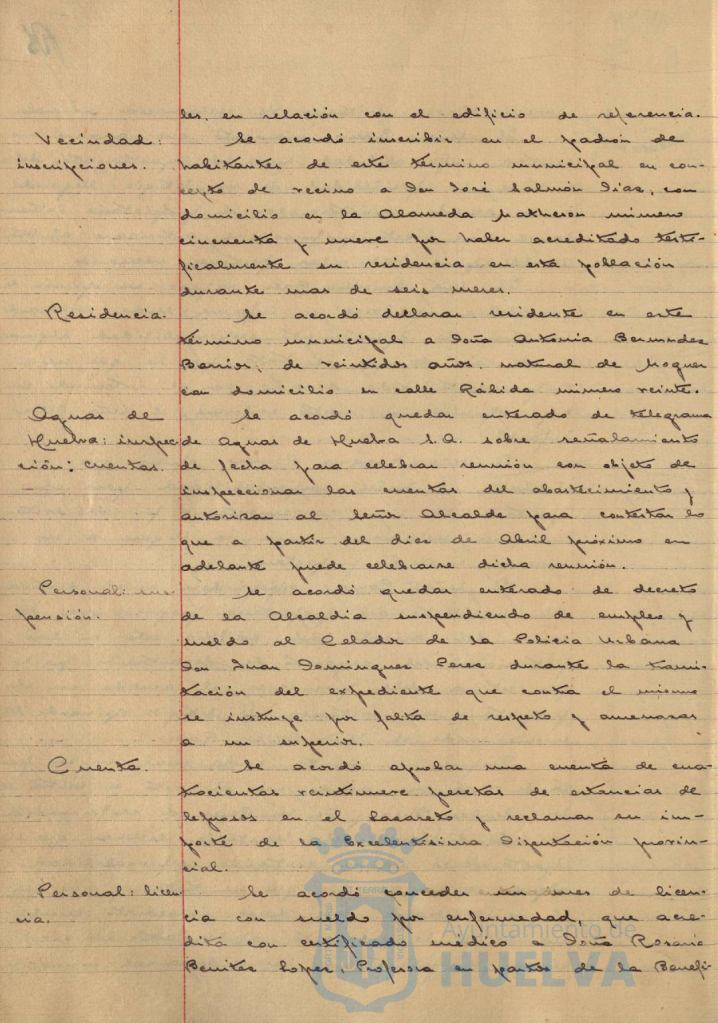 les, en relación con el edificio de referencia.
Vecindad: inscripciones.
Se acordó inscribir en el padrón de
habitantes de este término municipal en con-
cepto de vecino a Don José Salmón Días, con
domicilio en la Alameda Matheson número
cincuenta y nueve por haber acreditado testi-
ficalmente su residencia en esta población
durante mas de seis meses.
Residencia.
Se acordó declarar residente en este
término municipal a Doña Antonia Bermudez
Barrios, de veintidos años, natural de Moguer
con domicilio en calle Rábida número veinte.
Aguas de
Huelva: inspec-
ción: cuentas.
Se acordó quedar enterado de telegrama
de Aguas de Huelva S.A. sobre señalamiento
de fecha para celebrar reunión con objeto de
inspeccionar las cuentas del abastecimiento y
autorizar al Señor Alcalde para contestar lo
que a partir del diez de Abril próximo en
adelante puede celebrarse dicha reunión.
Personal: sus-
pensión.
Se acordó quedar enterado de decreto
de la Alcaldía suspendiendo de empleo y
sueldo al Celador de la Policia Urbana
Don Juan Dominguez Perez durante la trami-
tación del expediente que contra el mismo
se instruye por falta de respeto y amenazas
a un superior.
Cuenta.
Se acordó aprobar una cuenta de cua-
trocientas veintinueve pesetas de estancias de
leprosos en el Lazareto y reclamar su im-
porte de la Excelentísima Diputación provin-
cial.
Personal: licen-
cia.
Se acordó conceder un mes de licen-
cia con sueldo por enfermedad, que acre-
dita con certificado médico a Doña Rosario
Benitez Lopez, Profesora en partos de la Benefi-
Ayuntamiento de
HUELVA